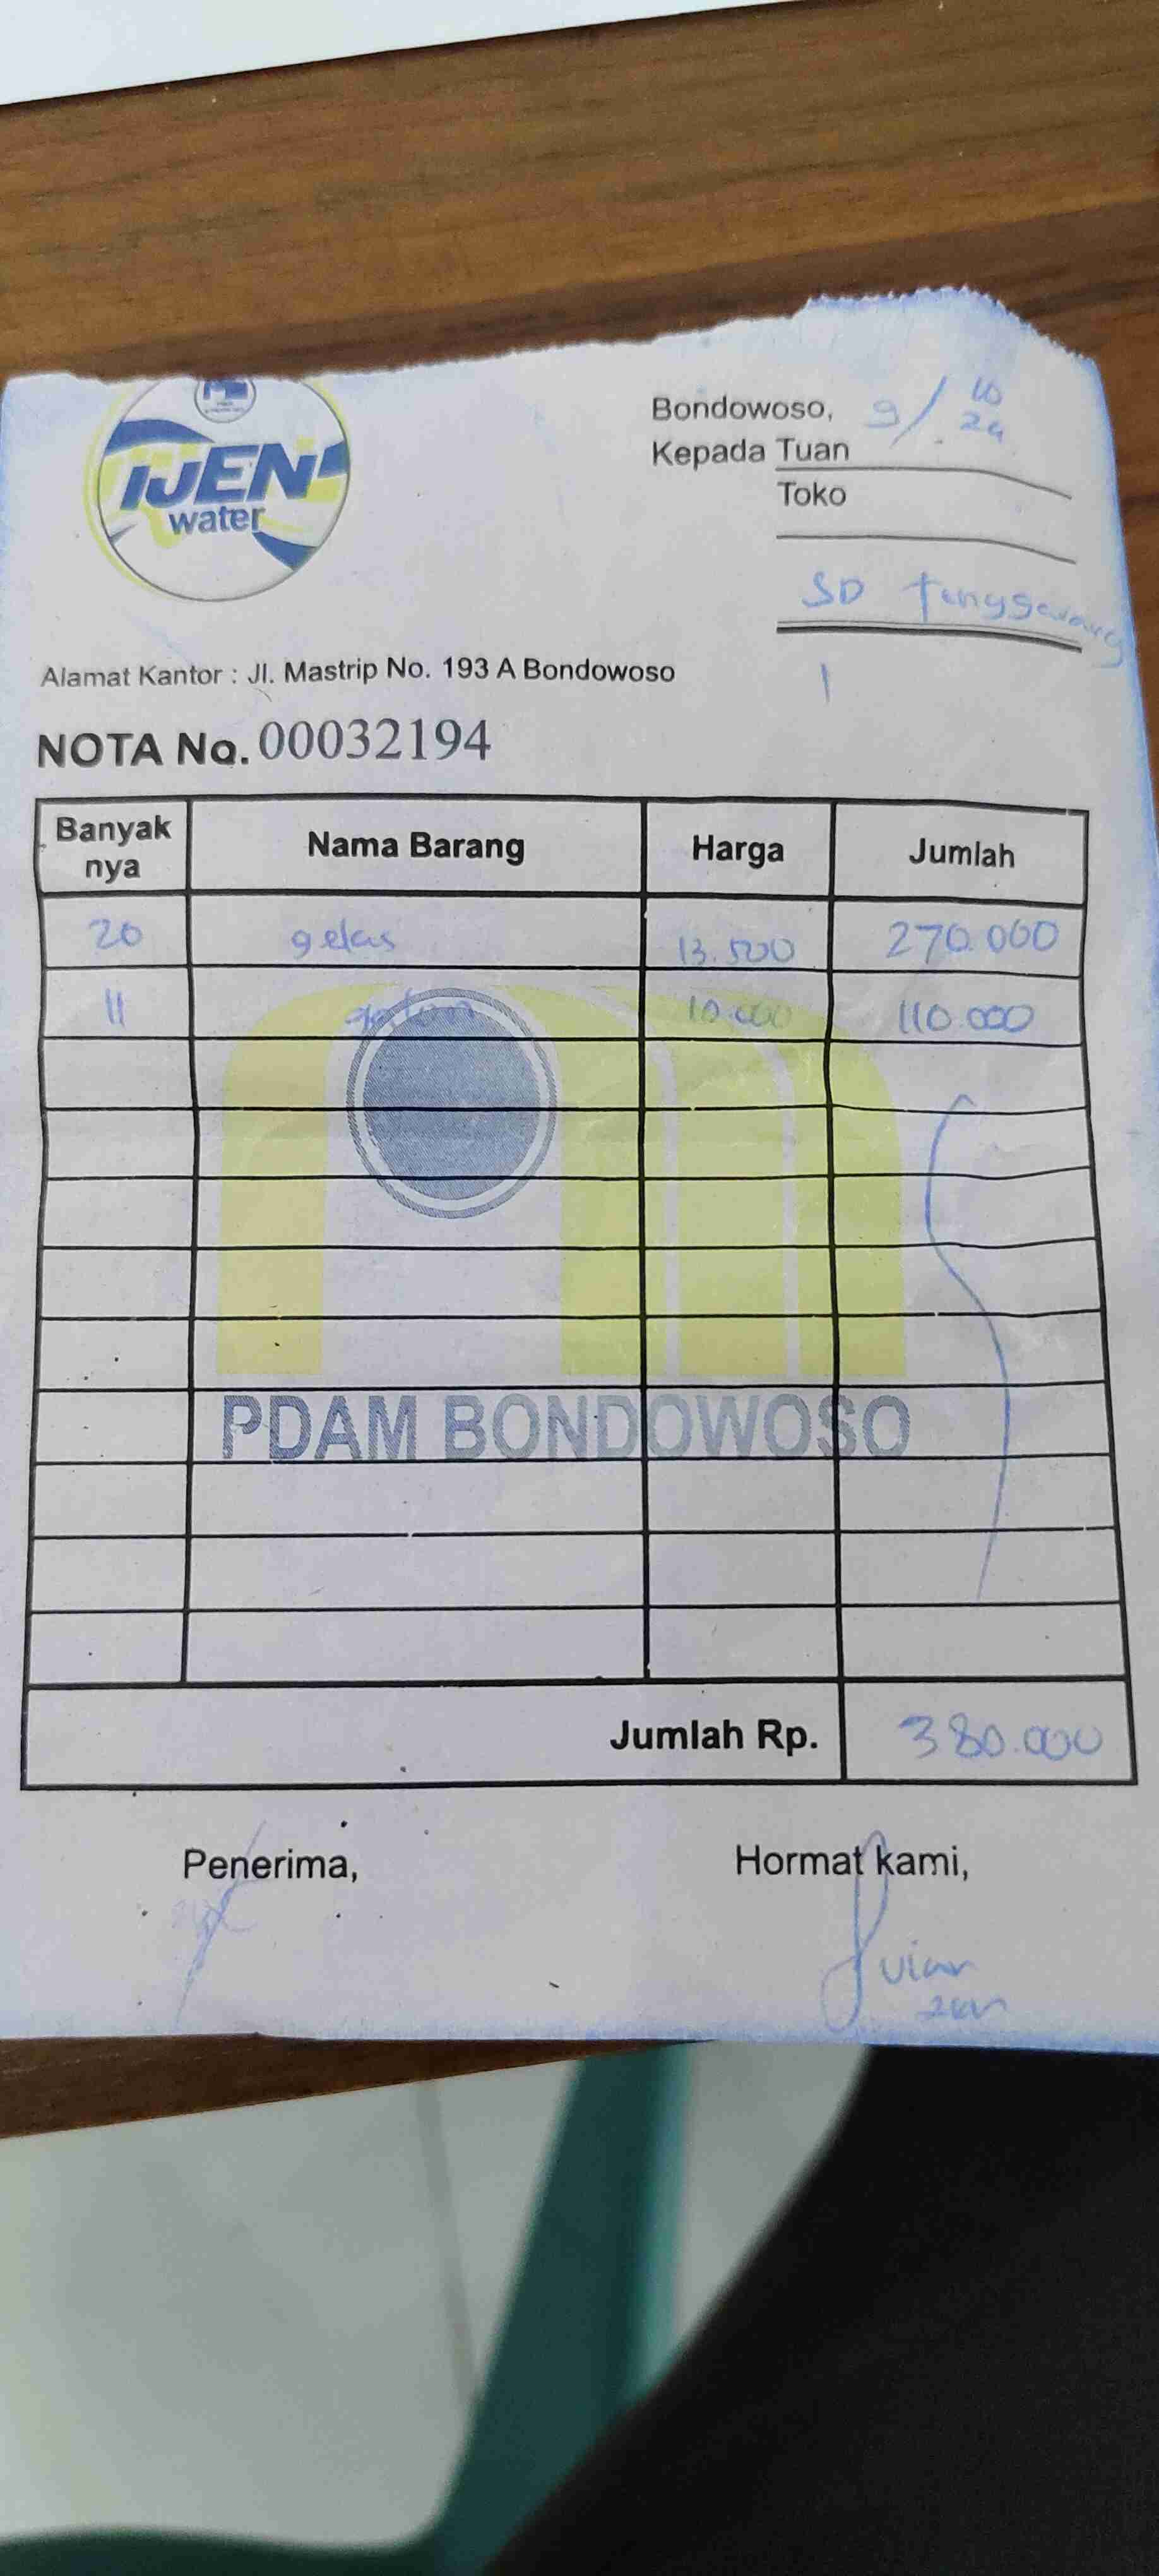 IJEN
water
Bondowoso, 9/10 24
Kepada Tuan
Toko
SD Tenggarang
1
Alamat Kantor : Jl. Mastrip No. 193 A Bondowoso
NOTA No. 00032194
Banyak nya Nama Barang Harga Jumlah
20 gelas 13.500 270.000
11 galon 10.000 110.000
PDAM BONDOWOSO
Jumlah Rp. 380.000
Penerima, Hormat kami,